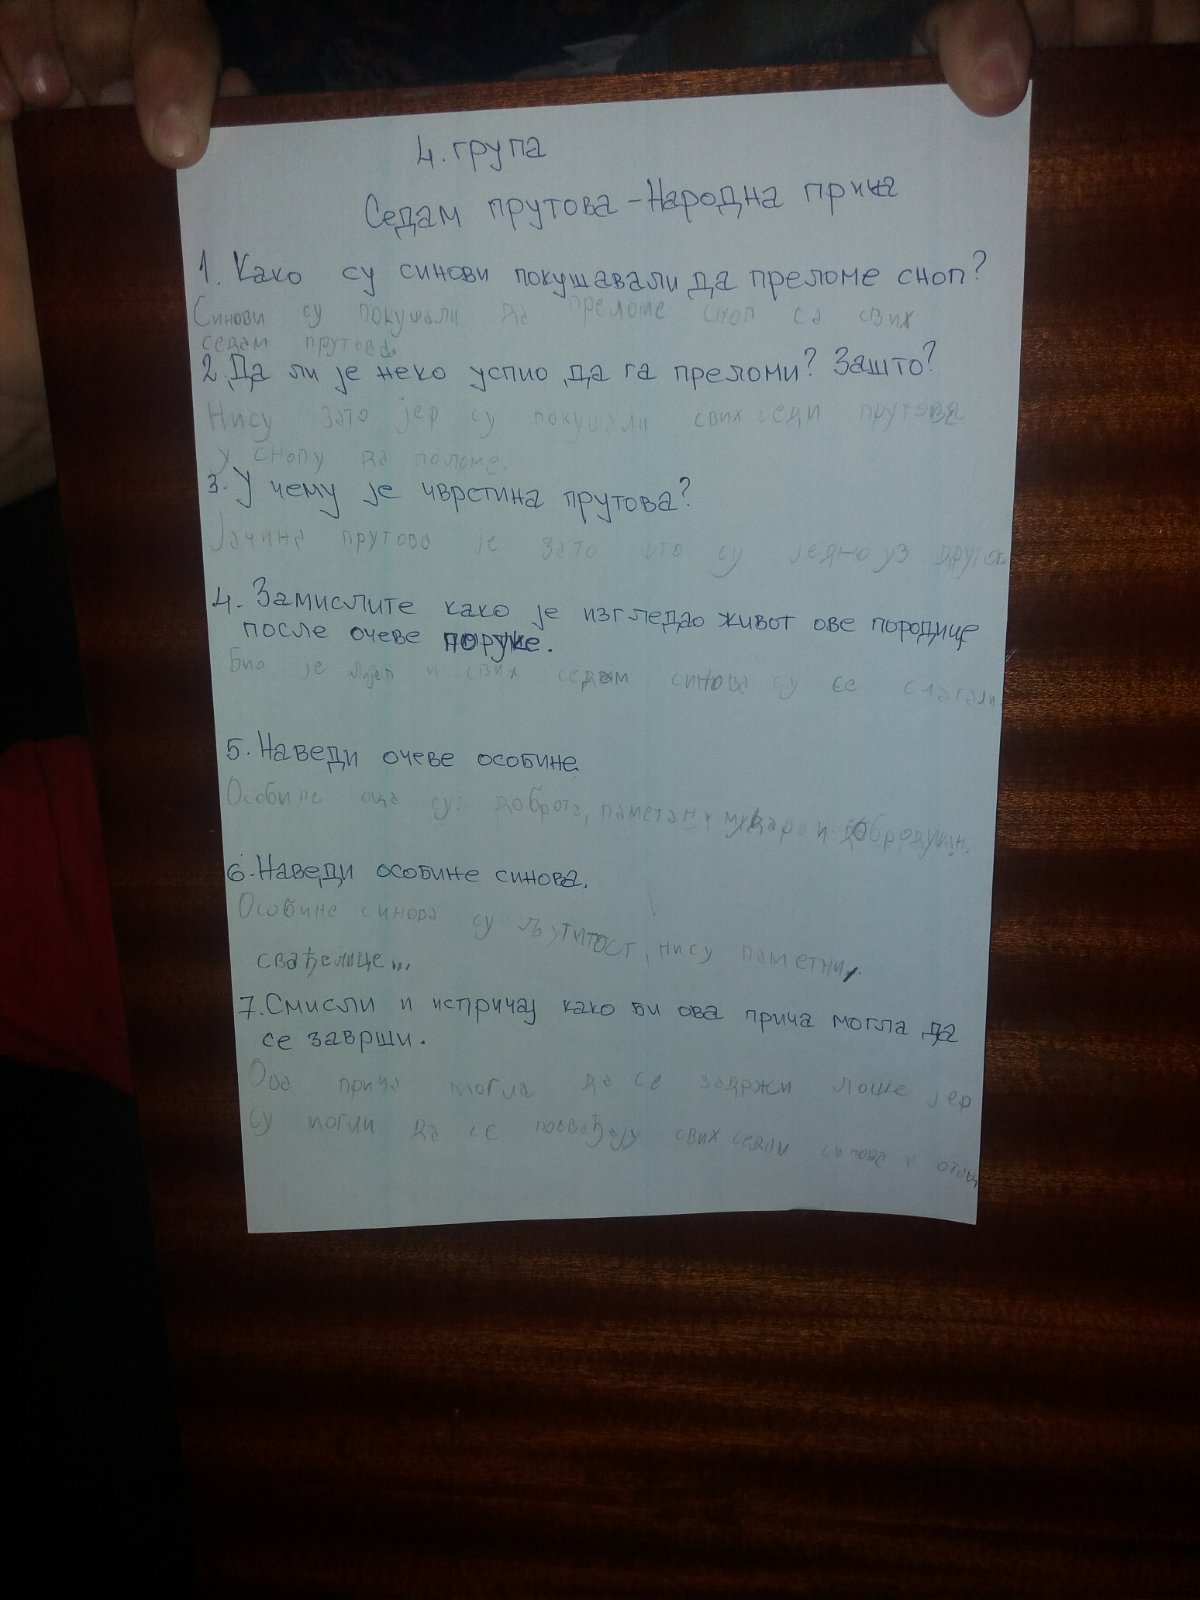 4. група
Седам прутова - Народна прича
1. Како су синови покушавали да преломе сноп?
Синови су покушали да преломе сноп са свих
седам прутова.
2. Да ли је неко успио да га преломи? Зашто?
Нису зато јер су покушали свих седи прутова
у снопу да поломе.
3. У чему је чврстина прутова?
Јачина прутова је зато што су једно уз другок
4. Замислите како је изгледао живот ове породице
после очеве поруке.
Био је лијеп и свих седам синова су се слагали
5. Наведи очеве особине.
Особине оца су: доброта, паметан, мудар и добродушан.
6. Наведи особине синова.
Особине синова су љутитост, нису паметни,
свађелице...
7. Смисли и испричај како би ова прича могла да
се заврши.
Ова прича могла да се задржи лоше јер
су могли да се посвађају свих седам синова и отац